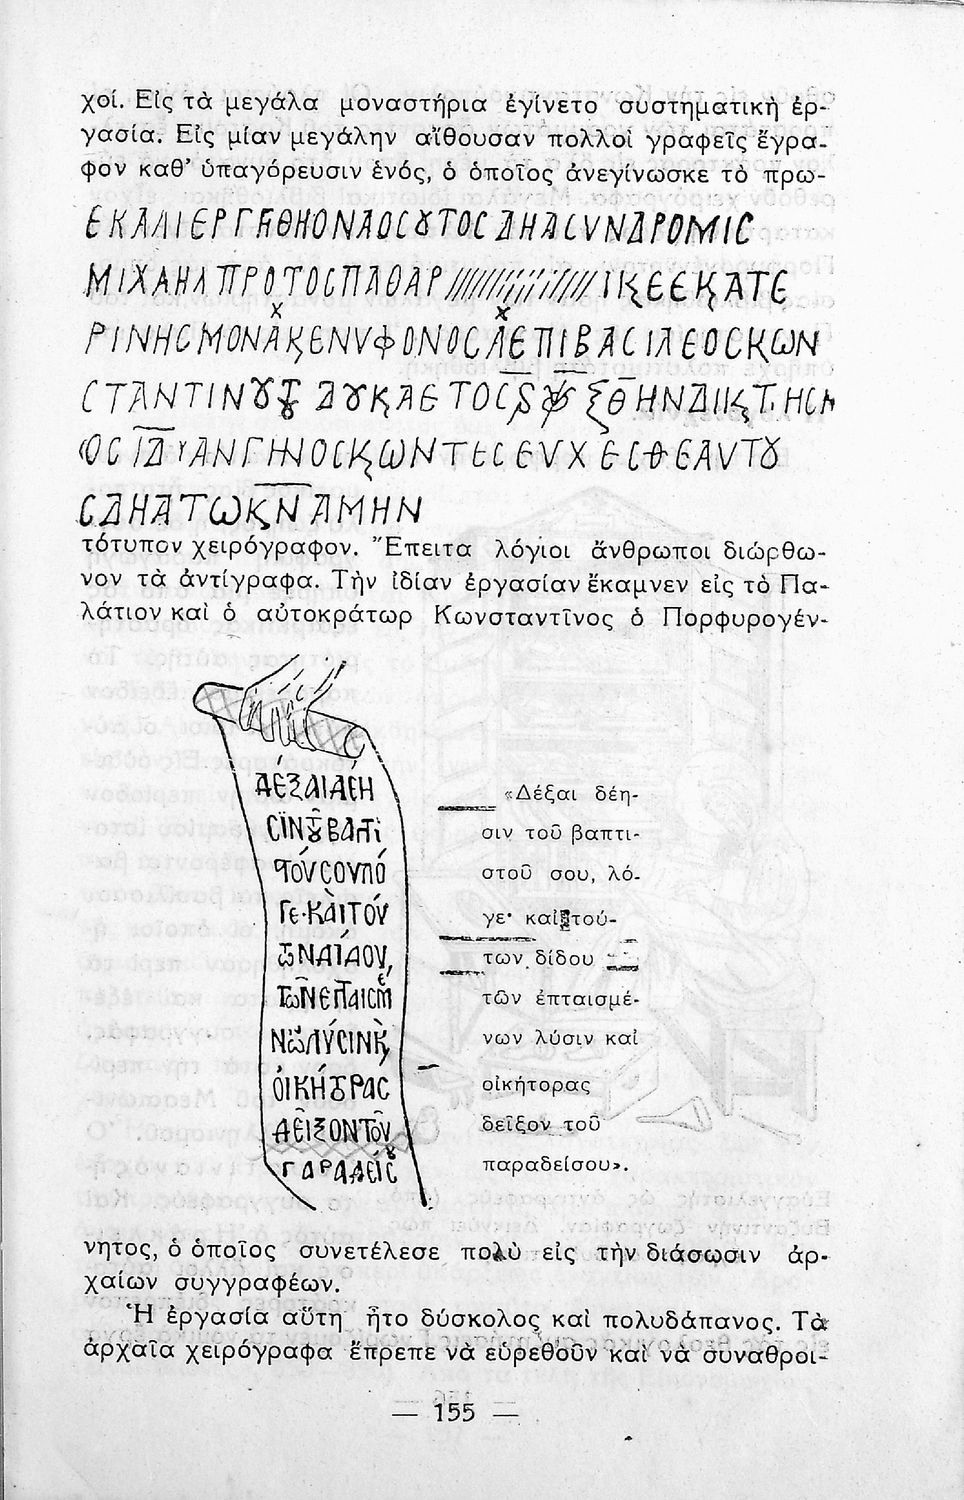 χοί. Εἰς τὰ μεγάλα μοναστήρια ἐγίνετο συστηματικὴ ἐρ-
γασία. Εἰς μίαν μεγάλην αἴθουσαν πολλοὶ γραφεῖς ἔγρα-
φον καθ’ ὑπαγόρευσιν ἑνός, ὁ ὁποῖος ἀνεγίνωσκε τὸ πρω-
ΕΚΑΛΙΕΡΓΗΘΗΟΝΑΟCȢΤΟC ΔΗΑCVΝΔΡΟΜΙC
ΜΙΧΑΗΛ ΠΡΟΤΟC
ΡΙΝΗC ΜΟΝΑΧ
CΤΑΝΤΙΝȢ
CΔΗΑΤΩΚΝ ΑΜΗΝ
τότυπον χειρόγραφον. Ἔπειτα λόγιοι ἄνθρωποι διώρθω-
νον τὰ ἀντίγραφα. Τὴν ἰδίαν ἐργασίαν ἔκαμνεν εἰς τὸ Πα-
λάτιον καὶ ὁ αὐτοκράτωρ Κωνσταντῖνος ὁ Πορφυρογέν-
ΔΕΞΑΙΔΕΗ
CΙΝΤȢΒΑΠΤΙ
CΤΟΥCΟΥΛΟ
ΓΕ·ΚΑΙΤΟΥ
ΤΩΝΔΙΔΟΥ,
ΤΩΝΕΠΤΑΙCΜΕ
ΝΩΝΛΥCΙΝΚ
ΟΙΚΗΤΟΡΑC
ΔΕΙΞΟΝΤΟΥ
ΠΑΡΑΔΕΙCȢ
«Δέξαι δέη-
σιν τοῦ βαπτι-
στοῦ σου, λό-
γε· καὶ τού-
των δίδου
τῶν ἐπταισμέ-
νων λύσιν καὶ
οἰκήτορας
δεῖξον τοῦ
παραδείσου».
νητος, ὁ ὁποῖος συνετέλεσε πολὺ εἰς τὴν διάσωσιν ἀρ-
χαίων συγγραφέων.
Ἡ ἐργασία αὕτη ἦτο δύσκολος καὶ πολυδάπανος. Τὰ
ἀρχαῖα χειρόγραφα ἔπρεπε νὰ εὑρεθοῦν καὶ νὰ συναθροι-
— 155 —